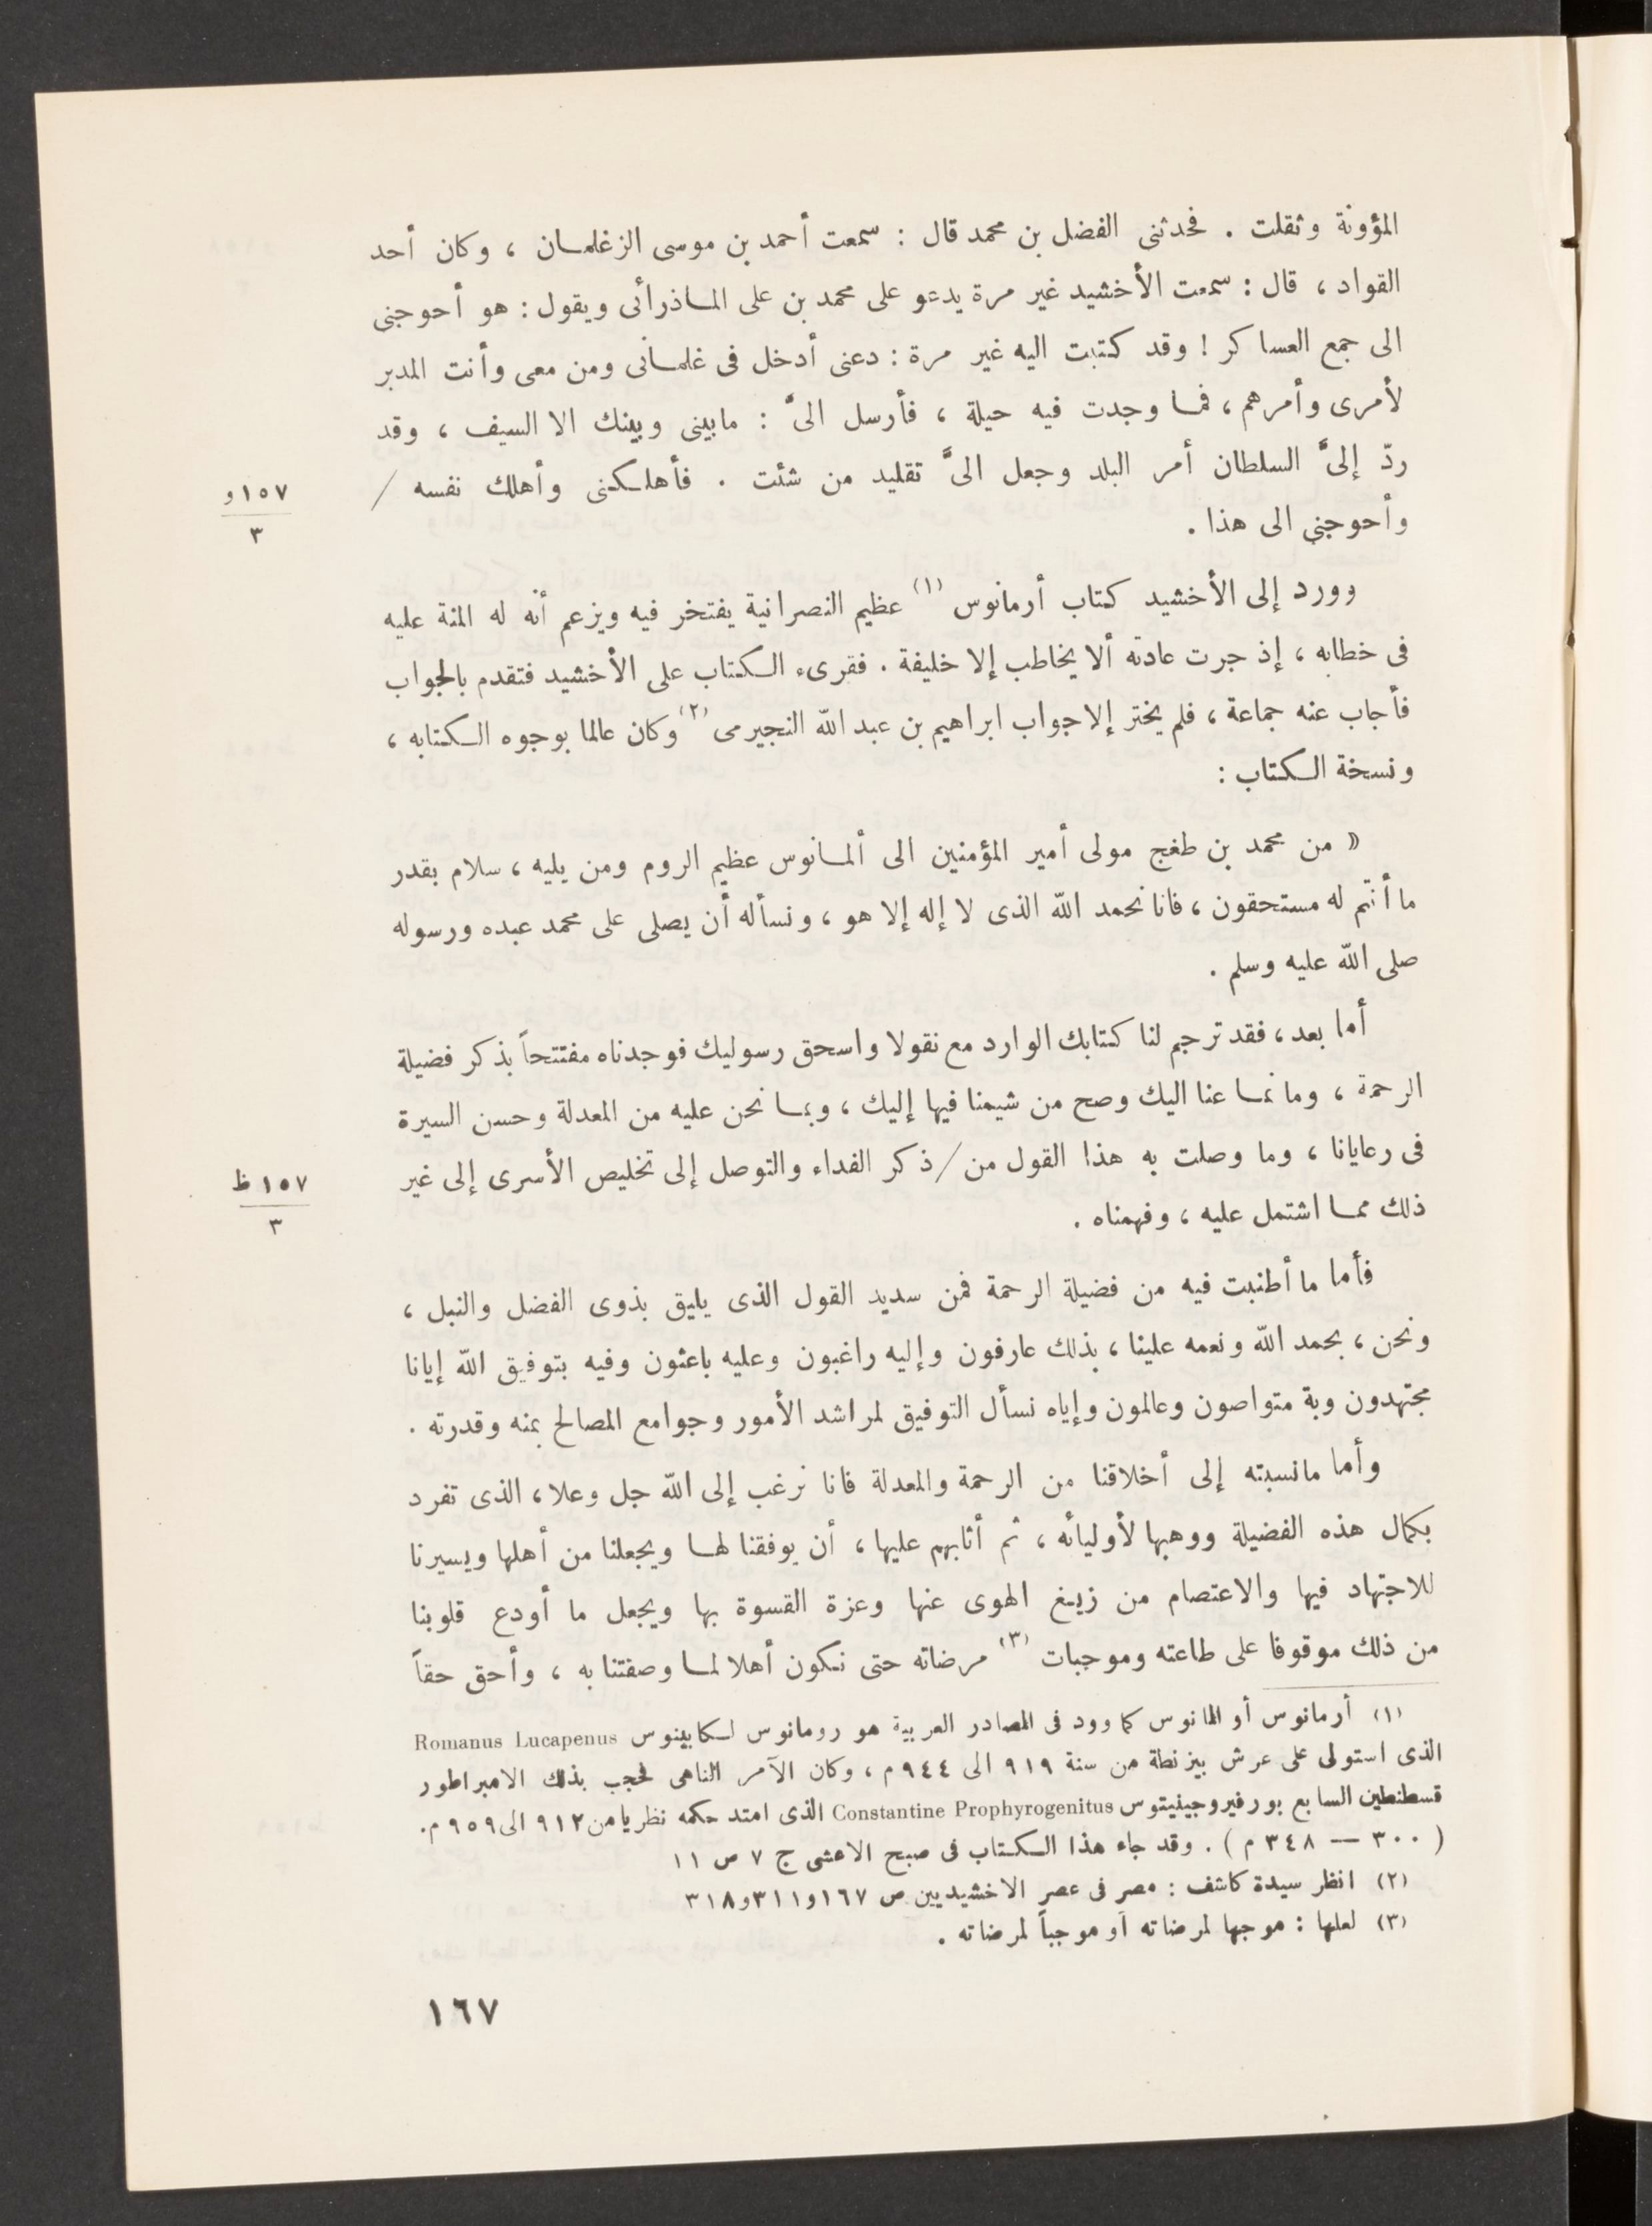 المؤونة وثقلت . فحدثنى الفضل بن محمد قال : سمعت أحمد بن موسى الزغلمان ، وكان أحد
القواد ، قال : سمعت الأخشيد غير مرة يدعو على محمد بن على الماذرائى ويقول : هو أحوجنى
الى جمع العساكر ! وقد كتبت اليه غير مرة : دعنى أدخل فى غلمانى ومن معى وأنت المدبر
لأمرى وأمرهم ، فما وجدت فيه حيلة ، فأرسل الىَّ : مابينى وبينك الا السيف ، وقد
ردّ إلىَّ السلطان أمر البلد وجعل الىَّ تقليد من شئت . فأهلكنى وأهلك نفسه /
١٥٧و
٣
وأحوجنى الى هذا .
وورد إلى الأخشيد كتاب أرمانوس (١) عظيم النصرانية يفتخر فيه ويزعم أنه له المنة عليه
فى خطابه ، إذ جرت عادته ألا يخاطب إلا خليفة . فقرىء الكتاب على الأخشيد فتقدم بالجواب
فأجاب عنه جماعة ، فلم يختر إلا جواب ابراهيم بن عبد الله النجيرمى (٢) وكان عالما بوجوه الكتابه ،
ونسخة الكتاب :
« من محمد بن طغج مولى أمير المؤمنين الى ألمانوس عظيم الروم ومن يليه ، سلام بقدر
ما أنتم له مستحقون ، فانا نحمد الله الذى لا إله إلا هو ، ونسأله أن يصلى على محمد عبده ورسوله
صلى الله عليه وسلم .
أما بعد ، فقد ترجم لنا كتابك الوارد مع نقولا واسحق رسوليك فوجدناه مفتتحاً بذكر فضيلة
الرحمة ، وما نما عنا اليك وصح من شيمنا فيها إليك ، وبما نحن عليه من المعدلة وحسن السيرة
فى رعايانا ، وما وصلت به هذا القول من / ذكر الفداء والتوصل إلى تخليص الأسرى إلى غير
١٥٧ ظ
٣
ذلك مما اشتمل عليه ، وفهمناه .
فأما ما أطنبت فيه من فضيلة الرحمة فمن سديد القول الذى يليق بذوى الفضل والنبل ،
ونحن ، بحمد الله ونعمه علينا ، بذلك عارفون وإليه راغبون وعليه باعثون وفيه بتوفيق الله إيانا
مجتهدون وبة متواصون وعالمون وإياه نسأل التوفيق لمراشد الأمور وجوامع المصالح بمنه وقدرته .
وأما مانسبته إلى أخلاقنا من الرحمة والمعدلة فانا نرغب إلى الله جل وعلا ، الذى تفرد
بكمال هذه الفضيلة ووهبها لأوليائه ، ثم أثابهم عليها ، أن يوفقنا لها ويجعلنا من أهلها ويسيرنا
للاجتهاد فيها والاعتصام من زيغ الهوى عنها وعزة القسوة بها ويجعل ما أودع قلوبنا
من ذلك موقوفا على طاعته وموجبات (٣) مرضاته حتى نكون أهلا لما وصفتنا به ، وأحق حقاً
(١) أرمانوس أو المانوس كما وود فى المصادر العربية هو رومانوس لكابينوس Romanus Lucapenus
الذى استولى على عرش بيزنطة من سنة ٩١٩ الى ٩٤٤ م ، وكان الآمر الناهى فحجب بذلك الامبراطور
قسطنطين السابع بورفيروجينيتوس Constantine Prophyrogenitus الذى امتد حكمه نظريا من ٩١٢ الى ٩٥٩ م.
( ٣٠٠ — ٣٤٨ م ) . وقد جاء هذا الكتاب فى صبح الاعشى ج ٧ ص ١١
(٢) انظر سيدة كاشف : مصر فى عصر الاخشيديين ص ١٦٧ و٣١١ و٣١٨
(٣) لعلها : موجها لمرضاته أو موجباً لمرضاته .
١٦٧